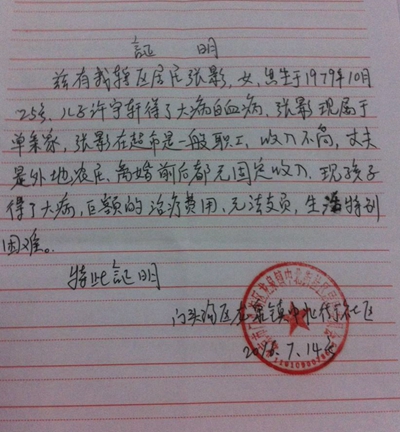 証明
兹有我辖区居民张影,女,出生于1979年10月
25号,儿子许宇轩得了大病白血病,张影现属于
单亲家,张影在超市是一般职工,收入不高,丈夫
是外地农民、离婚前后都无固定收入,现孩子
得了大病,巨额的治疗费用、无法支员,生活特别
困难。
特此証明
门头沟区龙泉镇中北街社区
7.14号